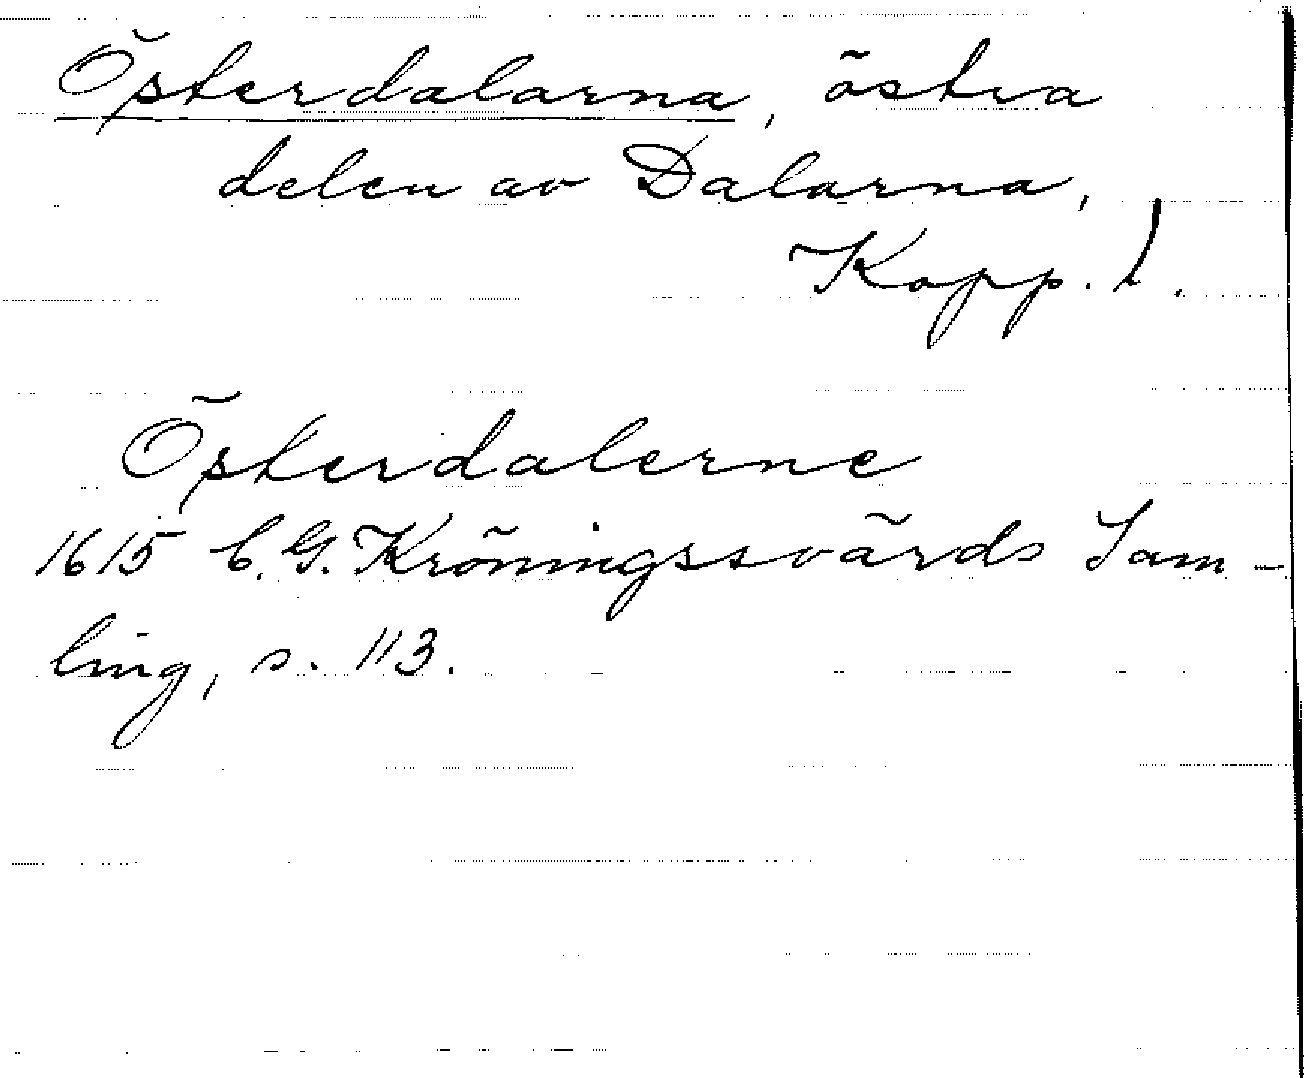 Österdalarna, östra
delen av Dalarna,
Kopp. l.
Österdalerne
1615 C. G. Kröningssvärds Sam-
ling, s. 113.